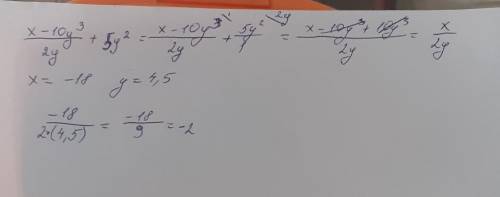 (x-10y³)/(2y) + 5y² = (x-10y³)/(2y) + 5y²/1 = (x-10y³+10y³)/(2y) = x/(2y)
x = -18 y = 4,5
-18/(2*(4,5)) = -18/9 = -2